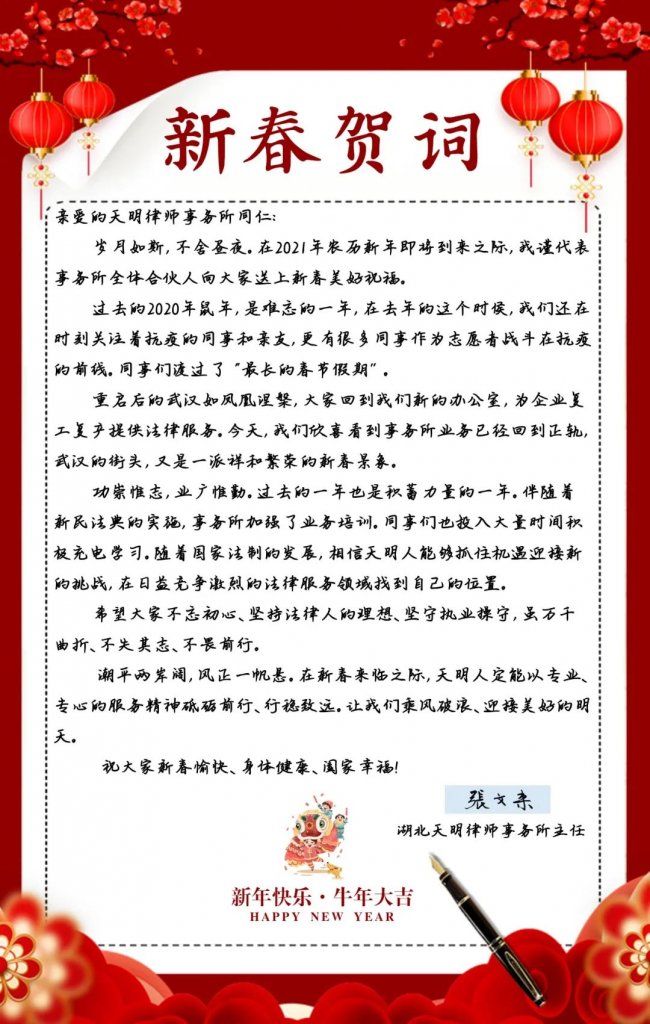 新春贺词
亲爱的天明律师事务所同仁:
岁月如斯,不舍昼夜。在2021年农历新年即将到来之际,我谨代表
事务所全体合伙人向大家送上新春美好祝福。
过去的2020年鼠年,是难忘的一年,在去年的这个时侯,我们还在
时刻关注着抗疫的同事和亲友,更有很多同事作为志愿者战斗在抗疫
的前线。同事们渡过了“最长的春节假期”。
重启后的武汉如凤凰涅槃,大家回到我们新的办公室,为企业复
工复产提供法律服务。今天,我们欣喜看到事务所业务已经回到正轨,
武汉的街头,又是一派祥和繁荣的新春景象。
功崇惟志,业广惟勤。过去的一年也是积蓄力量的一年。伴随着
新民法典的实施,事务所加强了业务培训。同事们也投入大量时间积
极充电学习。随着国家法制的发展,相信天明人能够抓住机遇迎接新
的挑战,在日益竞争激烈的法律服务领域找到自己的位置。
希望大家不忘初心、坚持法律人的理想、坚守执业操守,虽万千
曲折、不失其志、不畏前行。
潮平两岸阔,风正一帆悬。在新春来临之际,天明人定能以专业、
专心的服务精神砥砺前行、行稳致远。让我们乘风破浪、迎接美好的明
天。
祝大家新春愉快、身体健康、阖家幸福!
張文来
湖北天明律师事务所主任
新年快乐·牛年大吉
HAPPY NEW YEAR